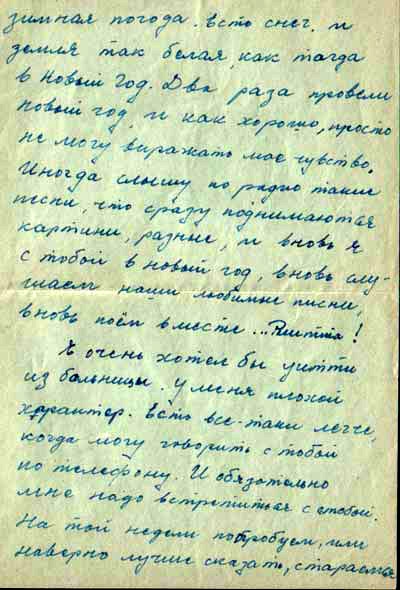 зимная погода. Есть снег, и
земля так белая, как тагда
в новый год. Два раза провели
новый год, и как хорошо, просто
не могу виражать мое чувство.
Иногда слышу по радио такие
песни, что сразу поднимаются
картини, разные, и вновь я
с тобой в новый год, вновь слу-
шаем наши любимые писни,
вновь поём вместе...
Я очень хотел бы уитти
из больницы. У меня плохой
характер. Есть все-таки легче,
когда могу говорить с тобой
по телефону. И обязательно
мне надо встретиться с тобой.
На той недели попробуем, или
наверно лучше сказать, стараемся